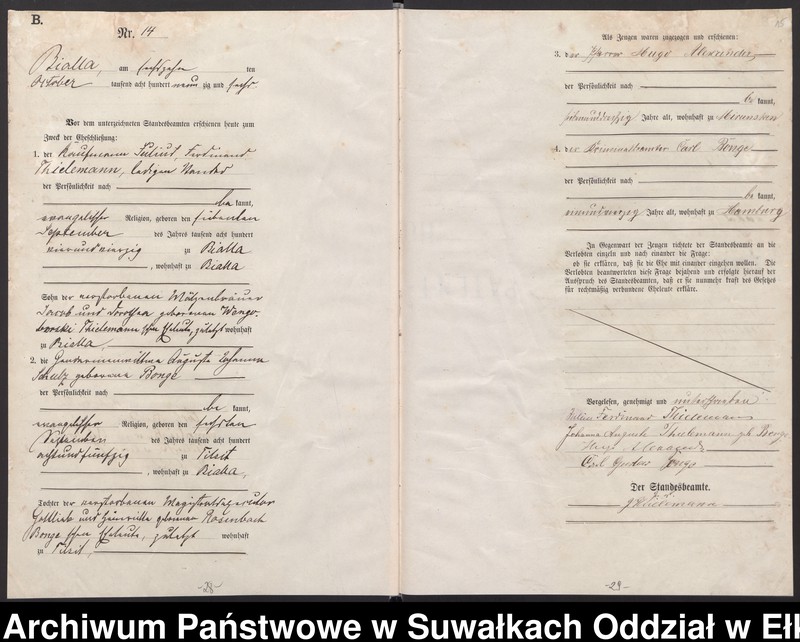 B.
Nr. 14
Bialla, am sechszehn ten
October tausend acht hundert neun zig und sechs.
Vor dem unterzeichneten Standesbeamten erschienen heute zum
Zweck der Eheschließung:
1. der Kaufmann Julius Ferdinand
Thielemann, ledigen Standes
der Persönlichkeit nach
be kannt,
evangelischer Religion, geboren den siebenten
September des Jahres tausend acht hundert
vierundvierzig zu Bialla
, wohnhaft zu Bialla
Sohn der verstorbenen Mälzenbräuer
Jacob und Dorothea geborenen
Thielemann schen Eheleute, zuletzt wohnhaft
zu Bialla,
2. die Auguste Johanna
Schulz geborene Bonge
der Persönlichkeit nach
be kannt,
evangelischer Religion, geboren den sechsten
des Jahres tausend acht hundert
achtundfünfzig zu Tilsit
, wohnhaft zu Bialla,
Tochter der verstorbenen
Gottlieb und Henriette geborene Rosenbach
Bonge schen Eheleute, zuletzt wohnhaft
zu Tilsit,
-28-
Als Zeugen waren zugezogen und erschienen:
3. der Pfarrer Hugo
der Persönlichkeit nach
be kannt,
Jahre alt, wohnhaft zu Mierunsken
4. der Kriminalbeamter Carl Bonge
der Persönlichkeit nach
be kannt,
neunundvierzig Jahre alt, wohnhaft zu Hamburg
In Gegenwart der Zeugen richtete der Standesbeamte an die
Verlobten einzeln und nach einander die Frage:
ob sie erklären, daß sie die Ehe mit einander eingehen wollen. Die
Verlobten beantworteten diese Frage bejahend und erfolgte hierauf der
Ausspruch des Standesbeamten, daß er sie nunmehr kraft des Gesetzes
für rechtmäßig verbundene Eheleute erkläre.
Vorgelesen, genehmigt und unterschrieben
Julius Ferdinand Thielemann
Johanna Auguste Thielemann geb Bonge
Hugo
Carl Gustav Bonge
Der Standesbeamte.
Thielemann
-29-
Archiwum Państwowe w Suwałkach Oddział w Eł